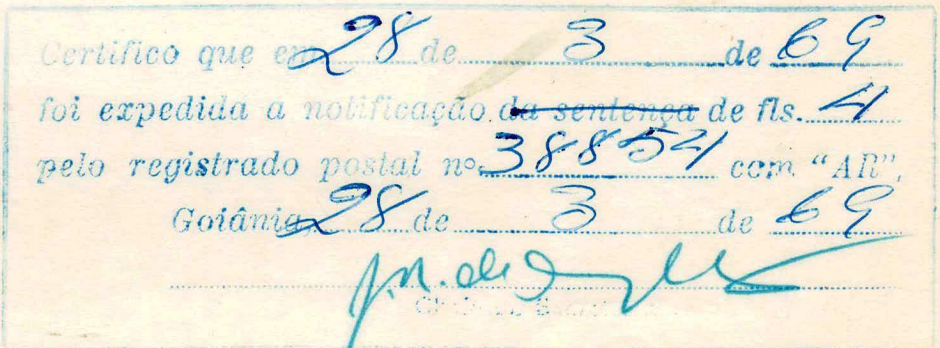 Certifico que em 28 de 3 de 69
foi expedida a notificação da sentença de fls. 4
pelo registrado postal nº 38854 com "AR".
Goiânia, 28 de 3 de 69